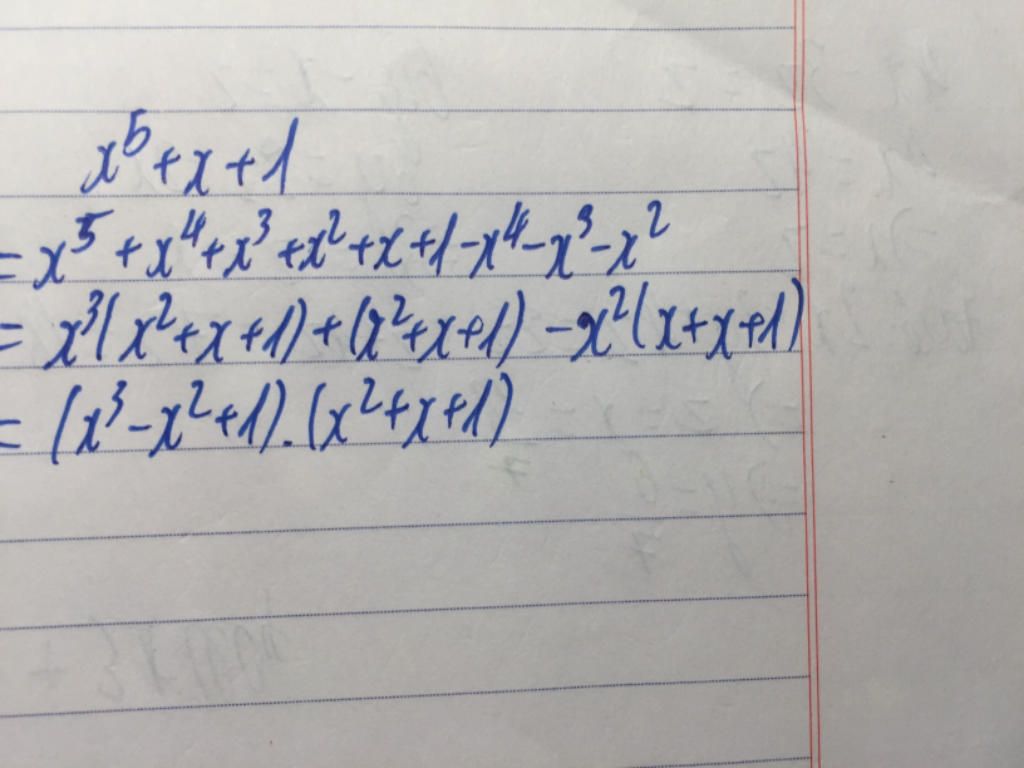 x⁵ + x + 1
= x⁵ + x⁴ + x³ + x² + x + 1 - x⁴ - x³ - x²
= x³(x² + x + 1) + (x² + x + 1) - x²(x + x + 1)
= (x³ - x² + 1).(x² + x + 1)